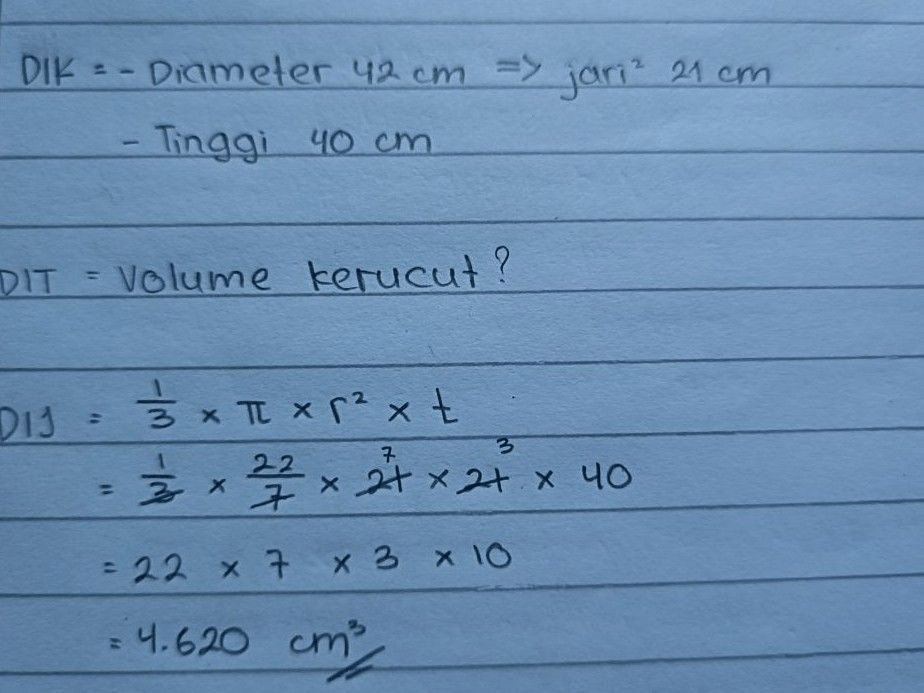 DIK = - Diameter 42 cm => jari² 21 cm
- Tinggi 40 cm
DIT = Volume kerucut?
DIJ = 1/3 × π × r² × t
= 1/3 × 22/7 × 21 7 × 21 3 × 40
= 22 × 7 × 3 × 10
= 4.620 cm³